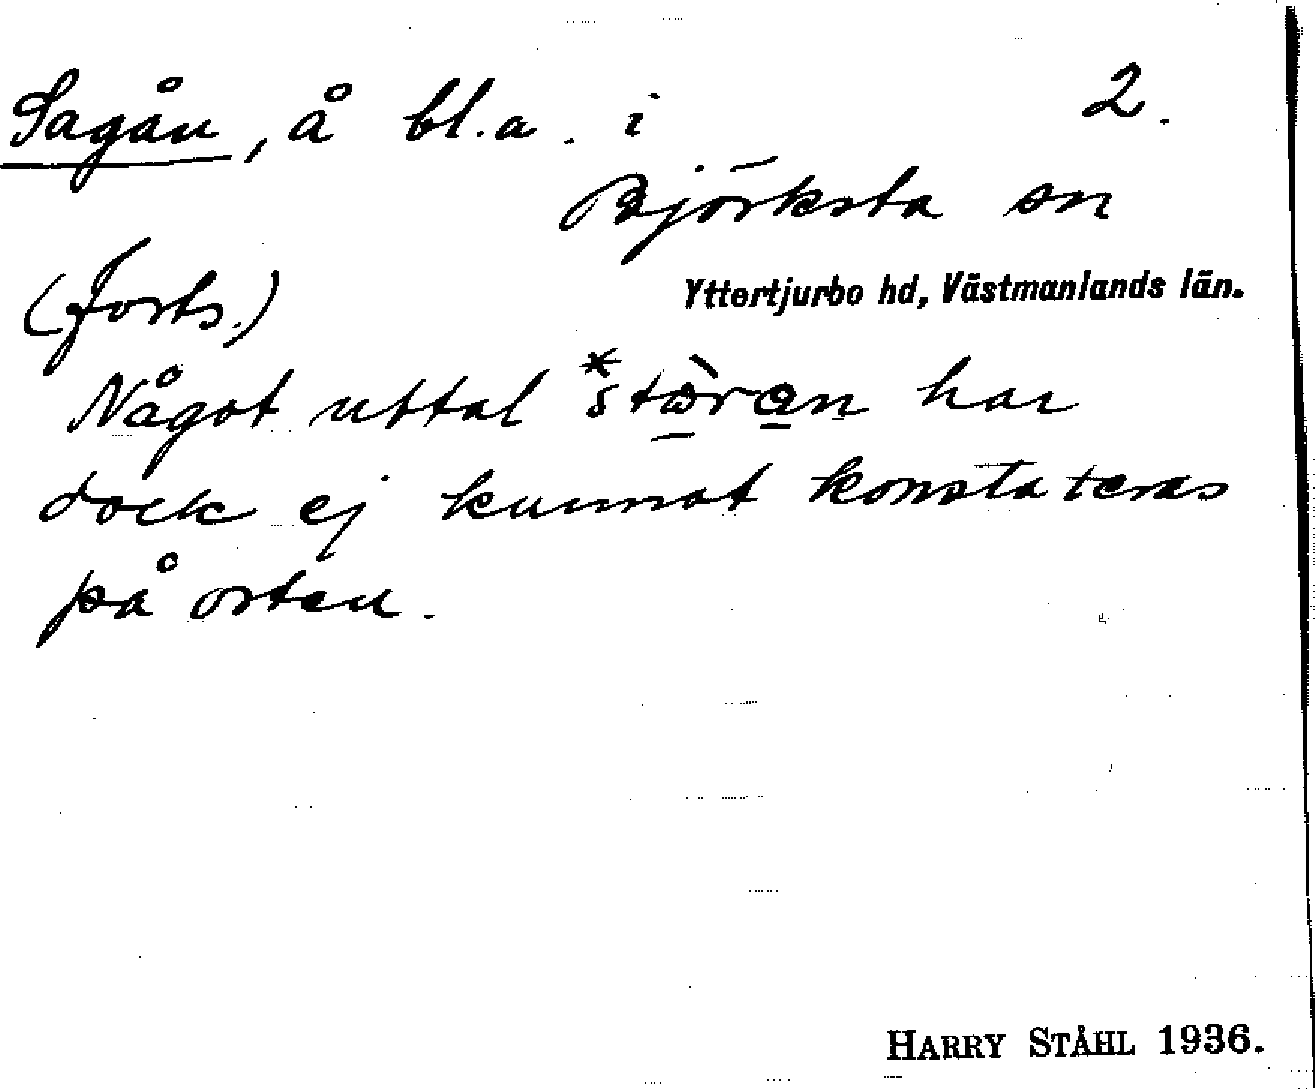 Sagån, å bl.a. i 2.
Björksta sn
(forts.) Yttertjurbo hd, Västmanlands län.
Något uttal har
dock ej kunnat konstateras
på orten.
HARRY STÅHL 1936.